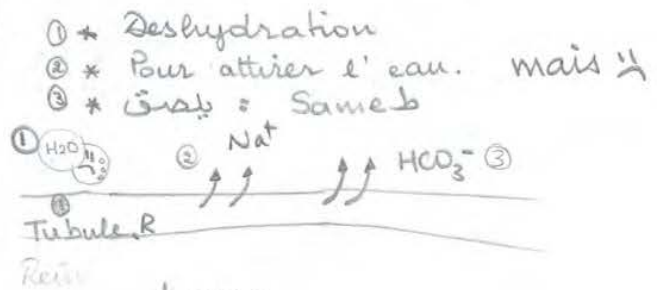 ① * Deshydration
② * Pour attirer l'eau. mais
③ * يلصق : Sameb
① H2O ② Na⁺ HCO₃⁻ ③
①
Tubule.R
Rein